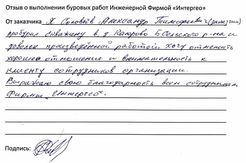 Отзыв о выполнении буровых работ Инженерной Фирмой «Интергео»
От заказчика Я Соловьёв Александр Тимофеевич
пробурил скважину в д. Назарово р-на и
доволен произведённой работой. Хочу отметить
хорошее отношение и внимательность к
клиенту сотрудников организации.
Выражаю свою благодарность всем сотрудникам
Фирмы «Интергео».
Подпись: